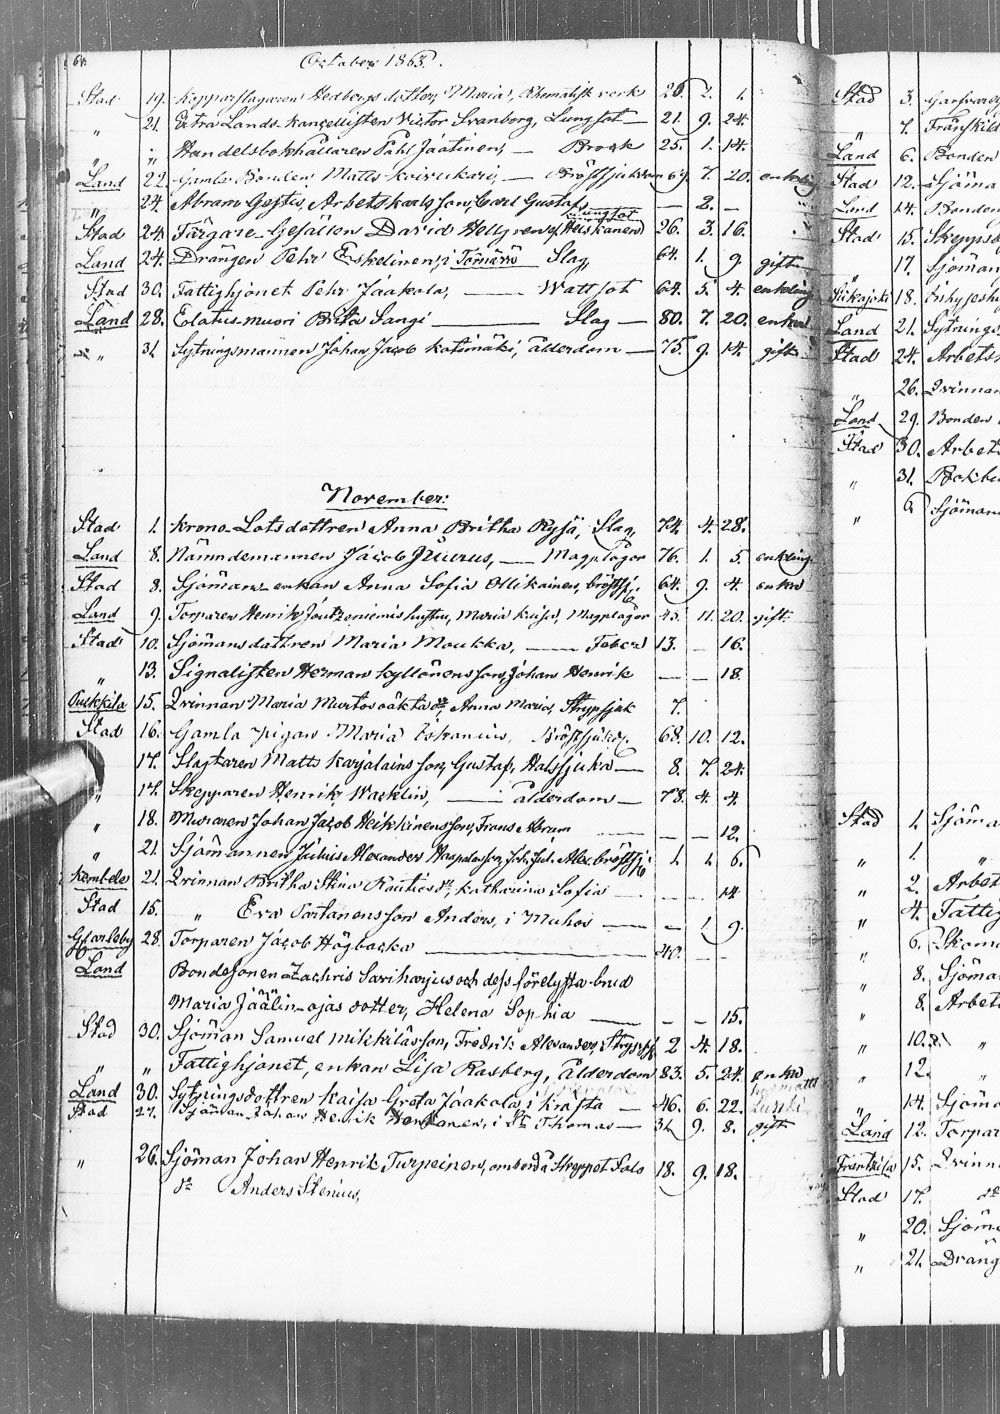 64.
October 1863.
Stad 19. Kopparslagaren Hedbergs dotter, Maria, Rhematisk verk 26. 2. 1.
„ 21. Extra Lands Kancellisten Victor Svanborg, Lungsot 21. 9. 24.
„ „ Handelsbokhållaren Pehr Jäätinen, — 25. 1. 14.
Land 22. Gamla Bonden Matts Koivukari, — Bröstsjukdom 69. 7. 20. enkling
„ 24. Abram Arbetskarls son, Carl Gustaf — 2. —
Stad 24. Färgare Gesällen David Hellgren Lungsot 26. 3. 16.
Land 24. Drängen Pehr Eskelinen, i — Slag, 64. 1. 9. gift
Stad 30. Fattighjonet Pehr Jaakola, — Wattsot 64. 5. 4. enkling
Land 28. Eolatus-muori Brita Sangi — Slag — 80. 7. 20. enka
„ 31. Sytningsmannen Johan Jacob Katinmäki, ålderdom — 75. 9. 14. gift
November:
Stad 1. Krono-Lotsdottren Anna Britha Rysä, Slag, 74. 4. 28.
Land 8. Nämndemannen Jacob — Magplågor 76. 1. 5. enkling
Stad 8. Sjömans-enkan Anna Sofia Ollikainen, bröstsj: 64. 9. 4. enka
Land 9. Torparen Henrik hustru, Maria Kaisa, Magplågor 45. 11. 20. gift.
Stad 10. Sjömansdottren Maria Moukka, — Feber 13. — 16.
„ 13. Signalisten Herman Kyllönens son, Johan Henrik — — 18.
Pulkkila 15. Qvinnan Maria Anna Maria, Strypsjuk 7.
Stad 16. Gamla pigan Maria Bröstsjukd. 68. 10. 12.
17. Slagtaren Matts Karjalains son, Gustaf, Halssjuka — 8. 7. 24.
„ 17. Skepparen Henrik Wacklin, — ålderdom — 78. 4. 4.
„ 18. Muraren Johan Jacob Heikkinens son, Frans Abram — — — 12.
„ 21. Sjömannen Julius Alexander Haapalas son, Joh. Jul. Alex. bröstsj: 1. 1. 6.
Kembele 21. Qvinnan Britha Stina Rautios dr, Katharina Sofia — — — 14
Stad 15. „ Eva Partanens son Anders, i Muhos — — 1 9.
Gcarleby 28. Torparen Jacob Högbacka — 40. — —
Land Bondesonen Zachris Sariharjus och dess förelofta brud
Maria Jäälin-ojas dotter, Helena Sophia — — — 15.
Stad 30. Sjöman Samuel Mikkiläs son, Fredrik Alexander, Strypsj. 2 4. 18.
„ „ Fattighjonet, enkan Lisa Rasberg, ålderdom 83. 5. 24. enka
Land 30. Sytningsdottren Kaisa Greta Jaakola, i Krafta — 46. 6. 22.
Stad 27. Sjöman Johan Henrik i St Thomas — 31. 9. 8. gift
„ 26. Sjöman Johan Henrik Turpeinen, ombord å Skeppet Salo 18. 9. 18.
dr Anders Stenius,
Stad 3. Garfvare
„ 7. Fränskild
Land 6. Bonden
Stad 12. Sjöma
Land 14. Bonden
Stad 15. Skepps
„ 17. Sjöman
Siikajoki 18. Inhyses
Land 21. Sytnings
Stad 24. Arbets
„ 26. Qvinnan
Land 29. Bonden
Stad 30. Arbets
„ 31. Bokb
„ Sjöman
Stad 1. Sjöma
„ 1. „
„ 2. Arbet
„ 4. Fattig
6. Skoma
„ 8. Sjöma
„ 8. Arbet
„ 10. „
„ 12. „
„ 14. Sjöma
Land 12. Torpar
Frantsila 15. Qvinn
Stad 17. dr
„ 20. Sjöma
„ 21. Dräng